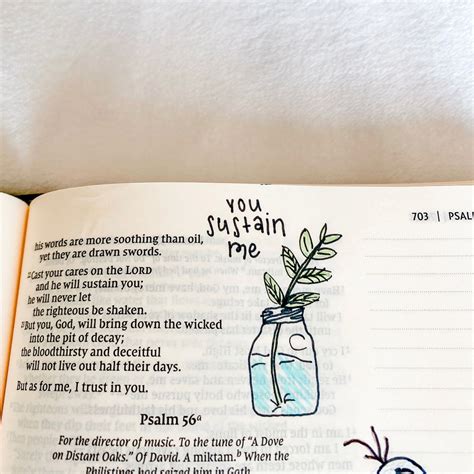 you
sustain
me
703 | PSAL
his words are more soothing than oil,
yet they are drawn swords.
22 Cast your cares on the LORD
and he will sustain you;
he will never let
the righteous be shaken.
23 But you, God, will bring down the wicked
into the pit of decay;
the bloodthirsty and deceitful
will not live out half their days.
But as for me, I trust in you.
Psalm 56a
For the director of music. To the tune of “A Dove
on Distant Oaks.” Of David. A miktam.b When the
Philistines had seized him in Gath.